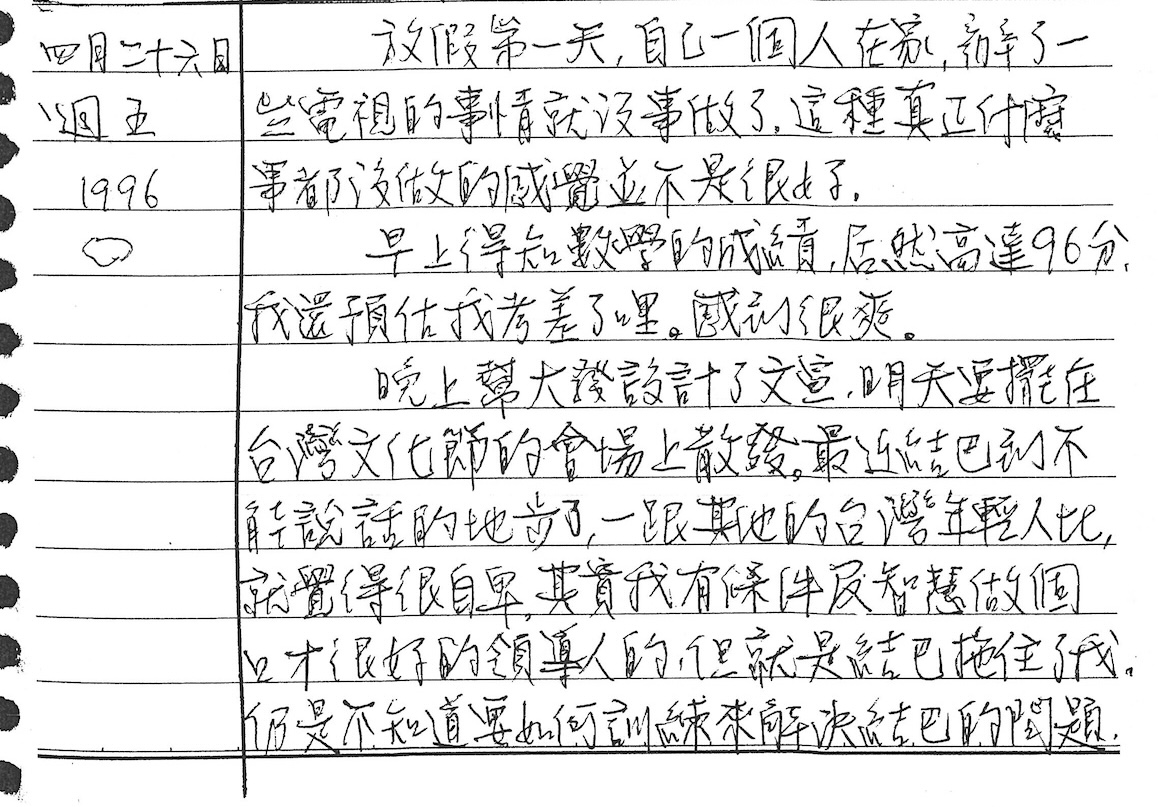 四月二十六日
週五
1996
放假第一天,自己一個人在家,辦了一
些電視的事情就沒事做了.這種真正什麼
事都沒做的感覺並不是很好.
早上得知數學的成績,居然高達96分,
我還預估我考差了哩。感到很爽。
晚上幫大發設計了文宣,明天要擺在
台灣文化節的會場上散發。最近結巴到不
能說話的地步了,一跟其他的台灣年輕人比,
就覺得很自卑,其實我有條件及智慧做個
口才很好的領導人的,但就是結巴拖住了我.
仍是不知道要如何訓練來解決結巴的問題.